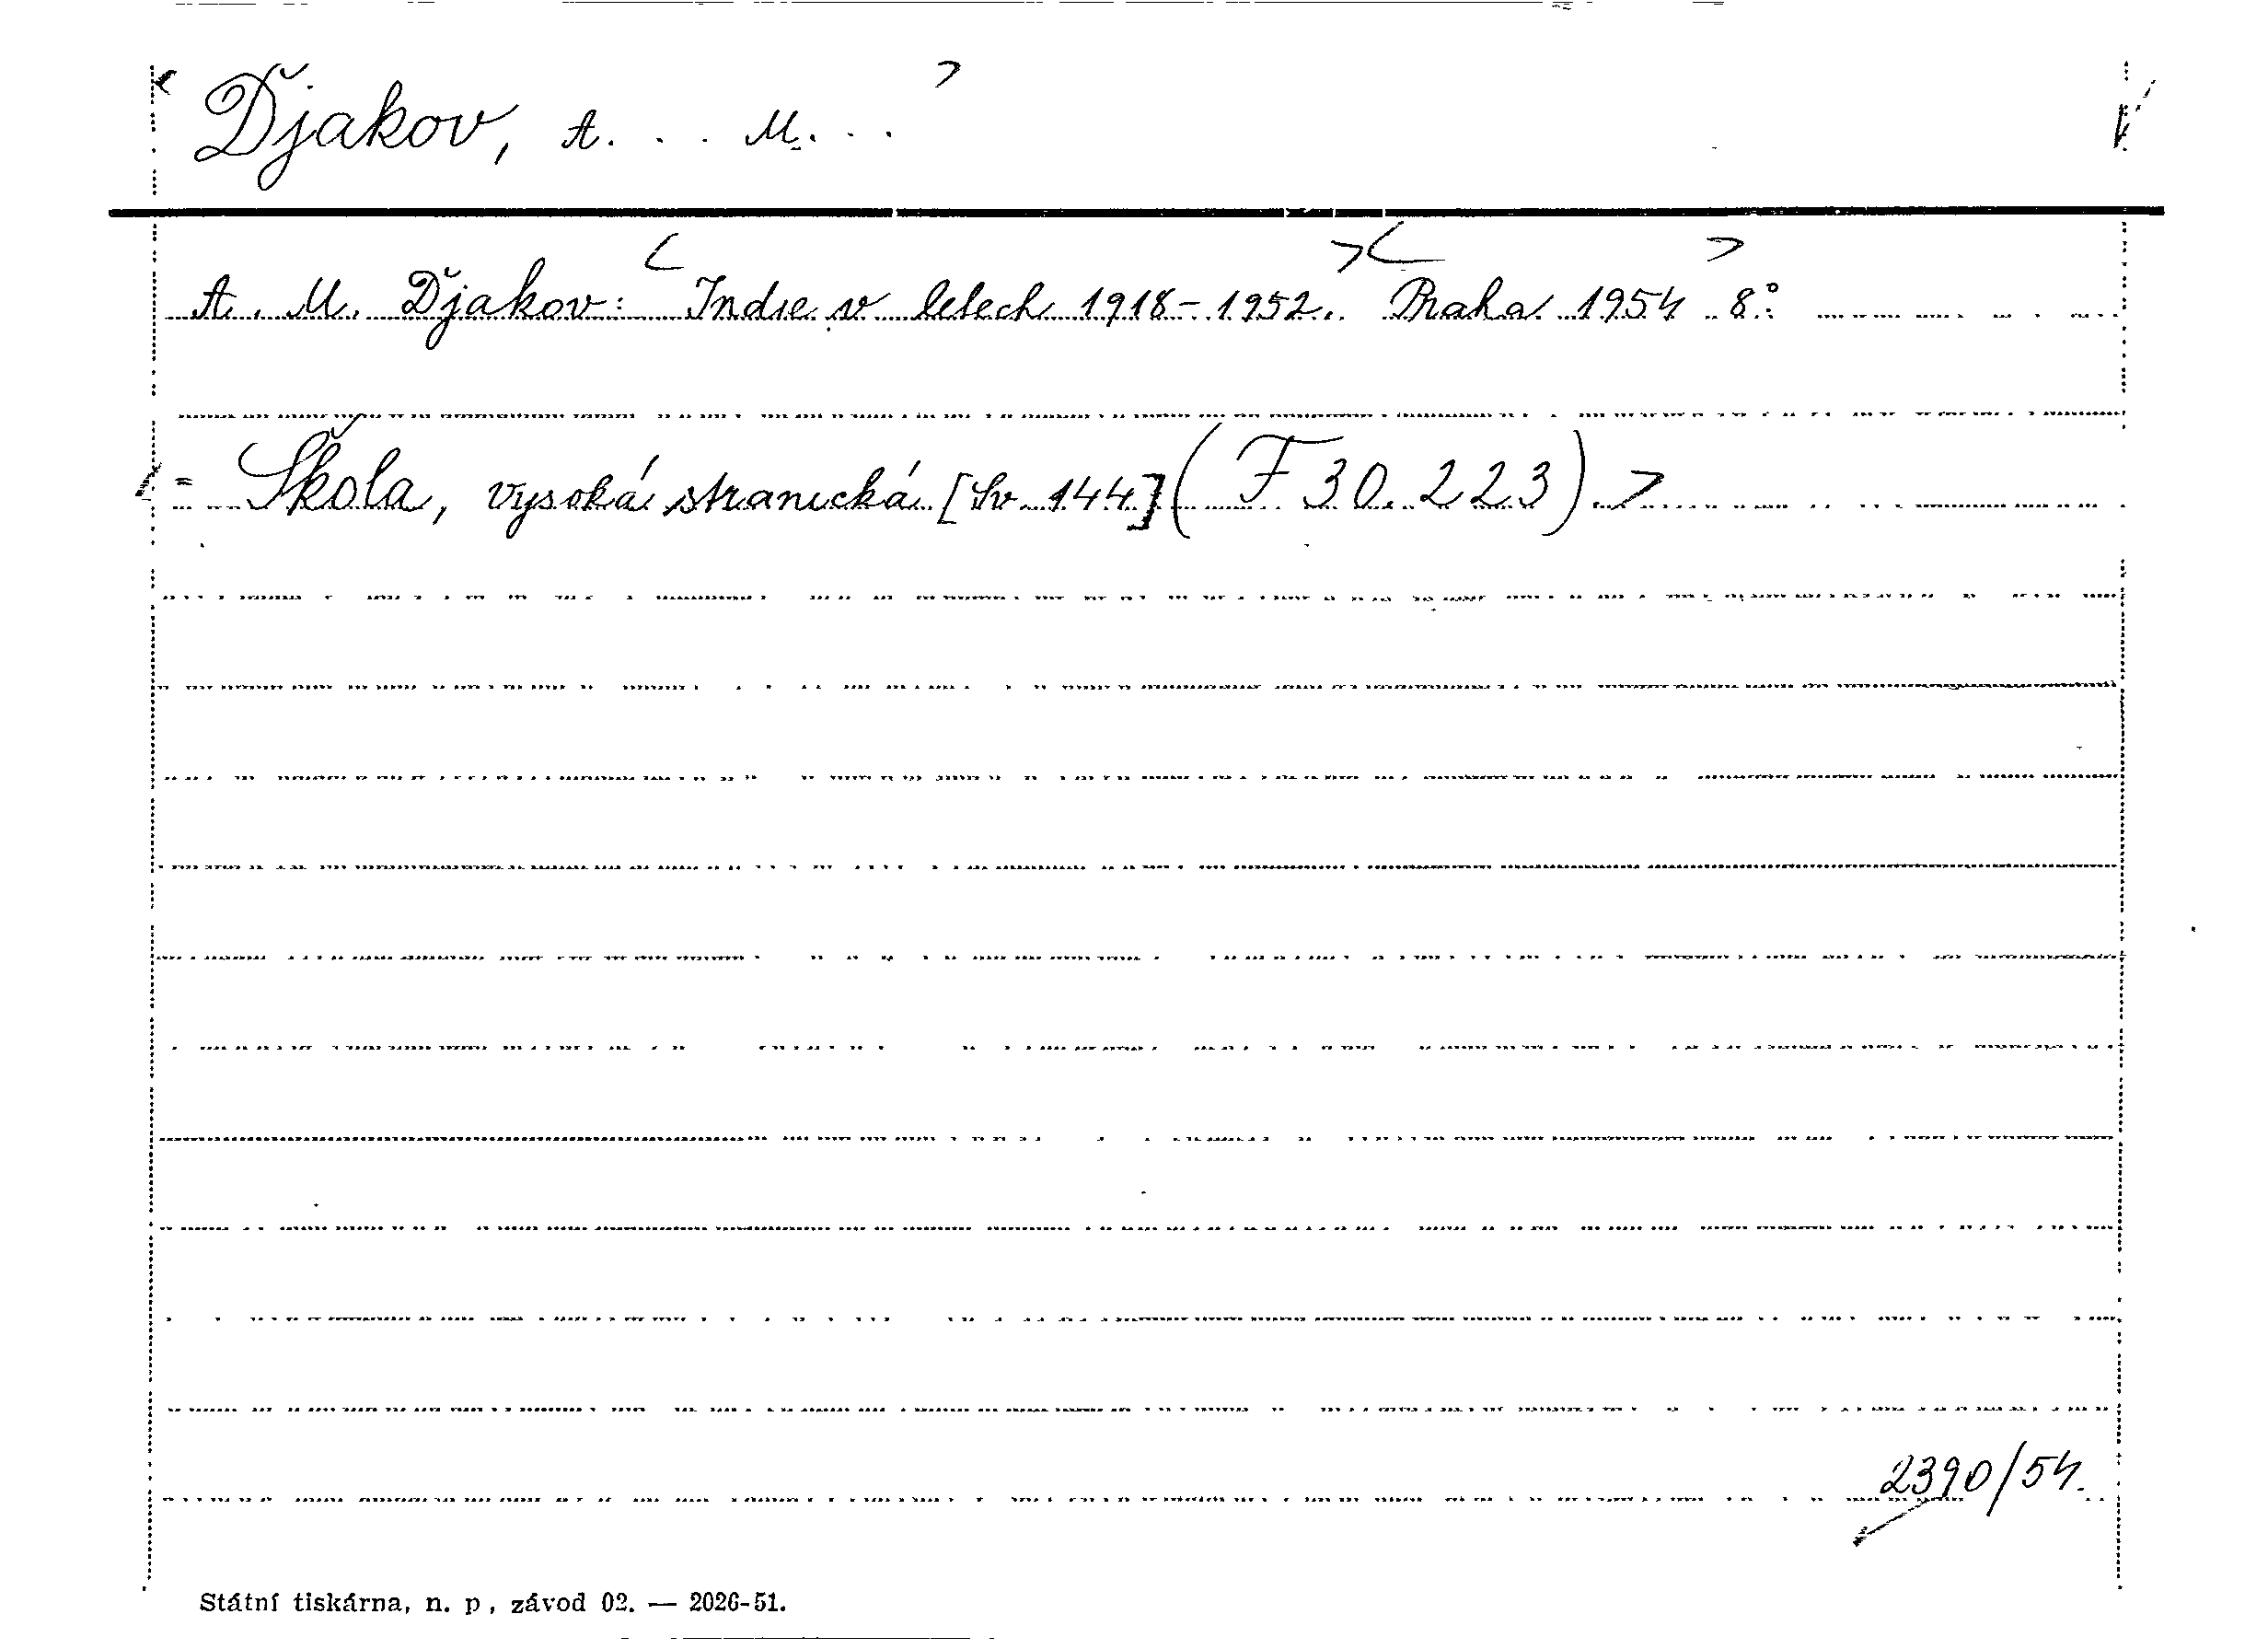 Ďjakov, A. . . M. . .
A. M. Ďjakov: Indie v letech 1918-1952. Praha 1954 8°.
= Škola, vysoká stranická [Sv. 144] (F 30.223).
2390/54.
Státní tiskárna, n. p., závod 02. — 2026-51.